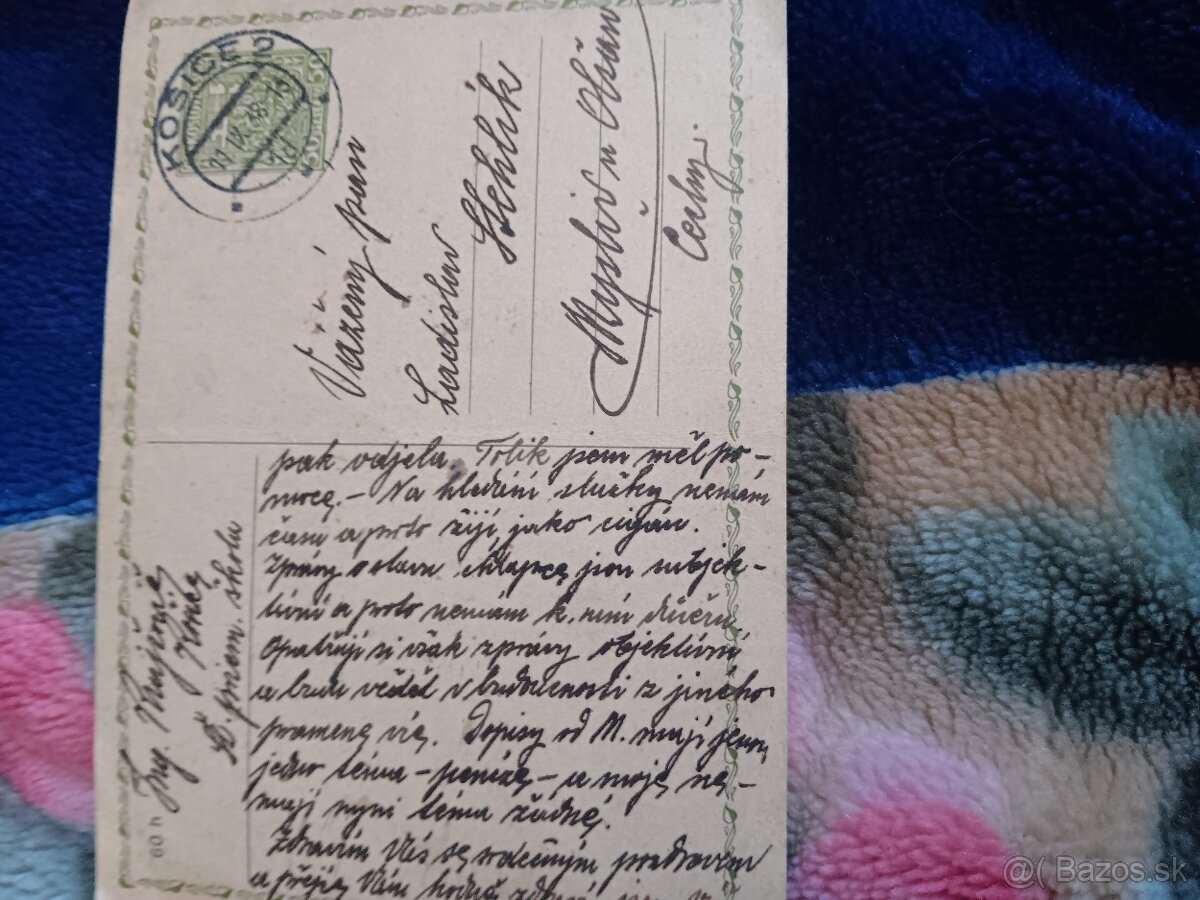 KOŠICE 2
11.IX.38-15
50
50
Vážený pan
Ladislav
Stehlík
Myslív u
Čechy.
Ing.
st. prům. škola
60 h
pak odjela. Tolik jsem měl po-
moce. - Na hledání služky nemám
času a proto žiji jako cigán.
Zprávy o stavu chlapce jsou subjek-
tivní a proto nemám k nim důvěru
Opatřuji si však zprávy objektivní
a budu věděl v budoucnosti z jineho
pramene víc. Dopisy od M. mají jenom
jedno téma - peníze - a moje ne-
mají nyní téma žádné.
Zdravím Vás se srdečným pozdravem
a přeji Vám hodně zdraví
@( Bazos.sk